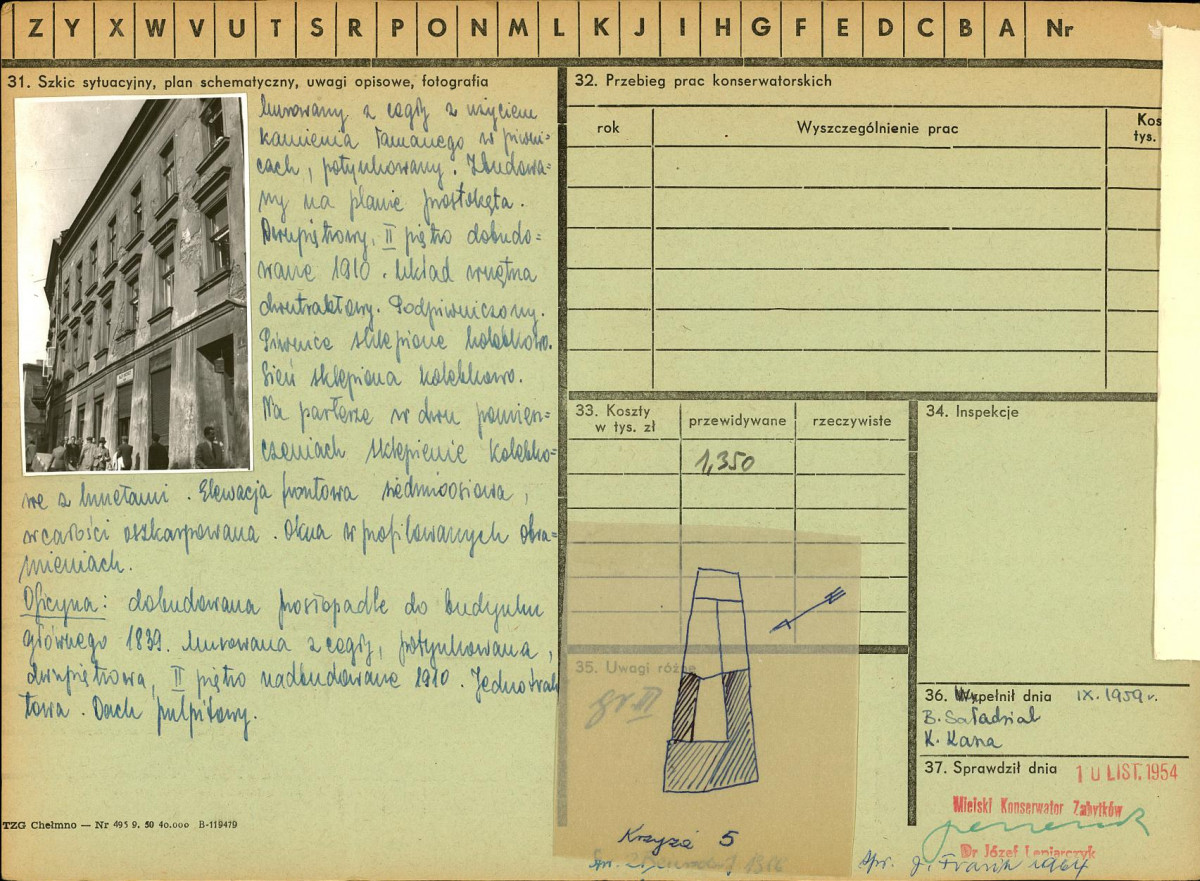 Z Y X W V U T S R P O N M L K J I H G F E D C B A Nr
31. Szkic sytuacyjny, plan schematyczny, uwagi opisowe, fotografia
Murowany z cegły z użyciem
kamienia łamanego w piwni-
cach, potynkowany. Zbudowa-
ny na planie prostokąta.
Dwupiętrowy, II piętro dobudo-
wane 1910. Układ wnętrza
dwutraktowy. Podpiwniczony.
Piwnice sklepione kolebkowo.
Sień sklepiona kolebkowo.
Na parterze w dwu pomiesz-
czeniach sklepienie kolebko-
we z lunetami. Elewacja frontowa siedmioosiowa,
w całości oszkarpowana. Okna w profilowanych obra-
mieniach.
Oficyna: dobudowana prostopadle do budynku
głównego 1839. Murowana z cegły, potynkowana,
dwupiętrowa, II piętro nadbudowane 1910. Jednotrak
towa. Dach pulpitowy.
TZG Chełmno — Nr 495 9. 50 40.000 B-119479
32. Przebieg prac konserwatorskich
rok Wyszczególnienie prac Kos
tys.
33. Koszty
w tys. zł
przewidywane rzeczywiste
1,350
34. Inspekcje
35. Uwagi różne
gr. III
Krzyża 5
36. Wypełnił dnia IX. 1959 r.
B. Saładziak
K. Kana
37. Sprawdził dnia 10 LIST. 1954
Miejski Konserwator Zabytków
Dr Józef Lepiarczyk
Spr. J. Frazik 1964